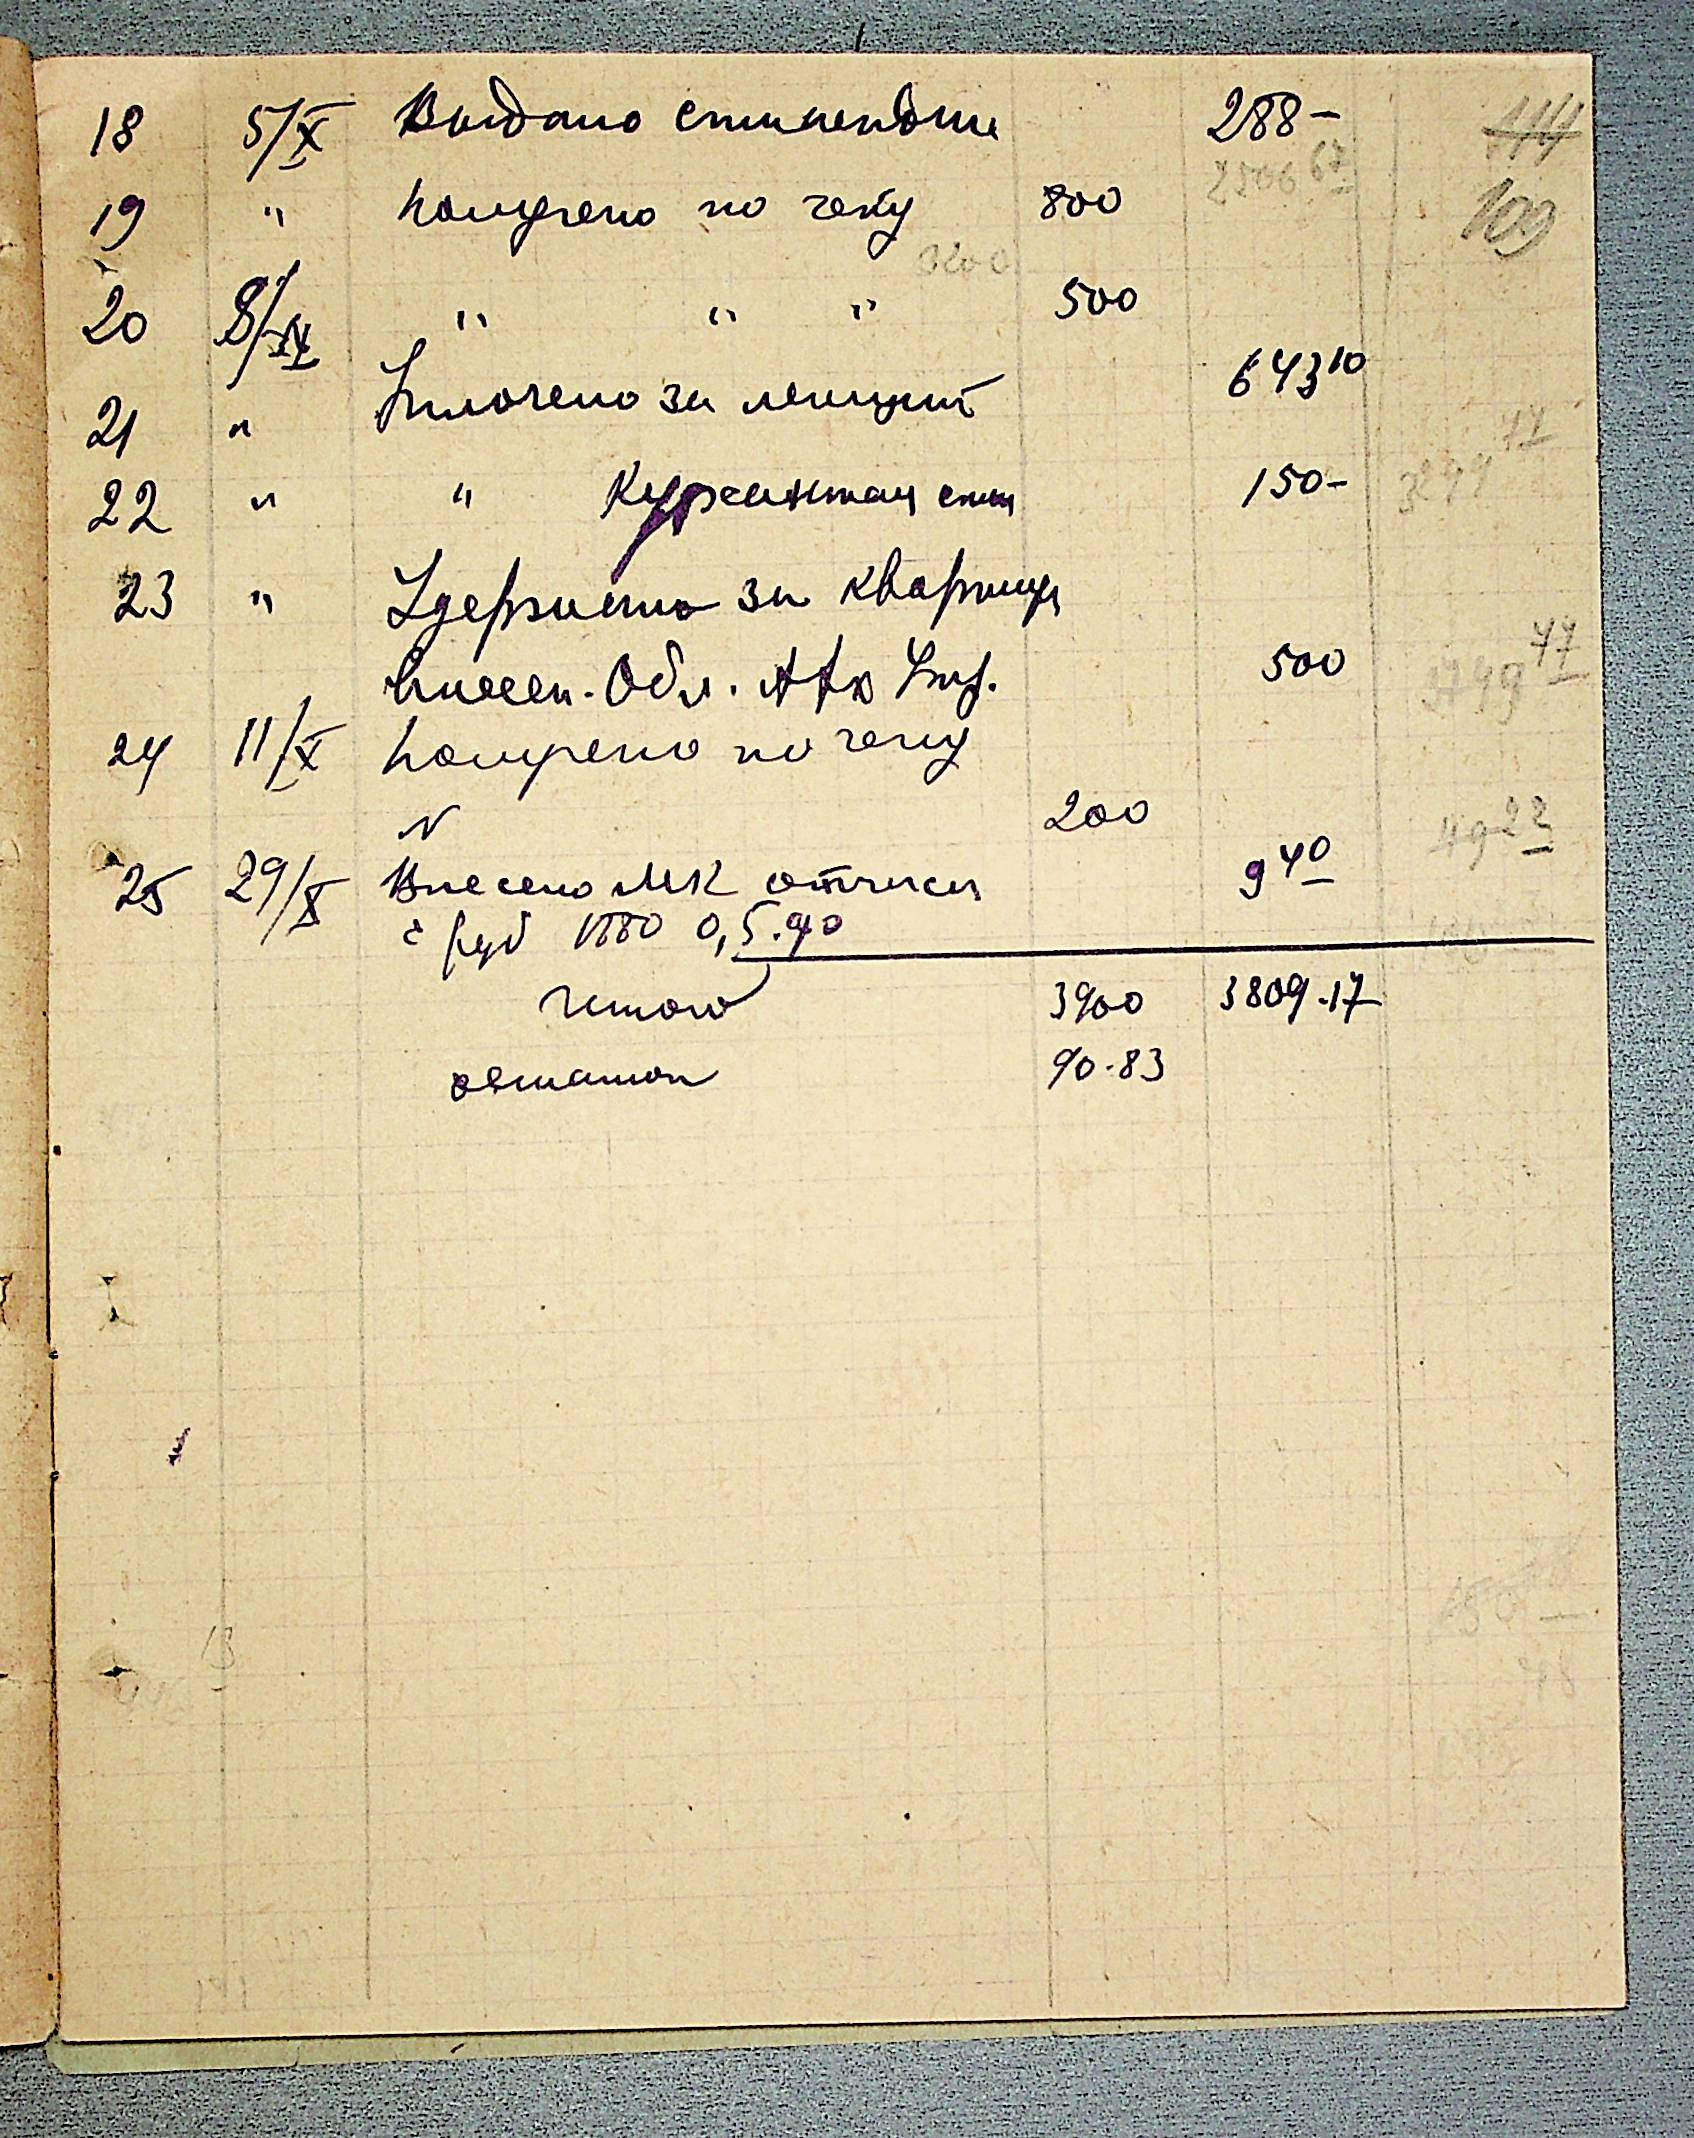 18 5/X Выдано стипендии 288-
114
2506 67
19 " Получено по чеку 800
109
3200
20 8/XI " " " 500
21 " Уплочено за лекции 643 10
3299 77
22 " " Курсантам стип 150-
23 " Удержано за квартиру
внесен. Обл. 500
3799 77
24 11/X Получено по чеку
N 200
49 23
25 29/X Внесено МК отчисл 9 40
с руб 1880 0,5.40
Итого 3900 3809.17
остаток 90.83
13